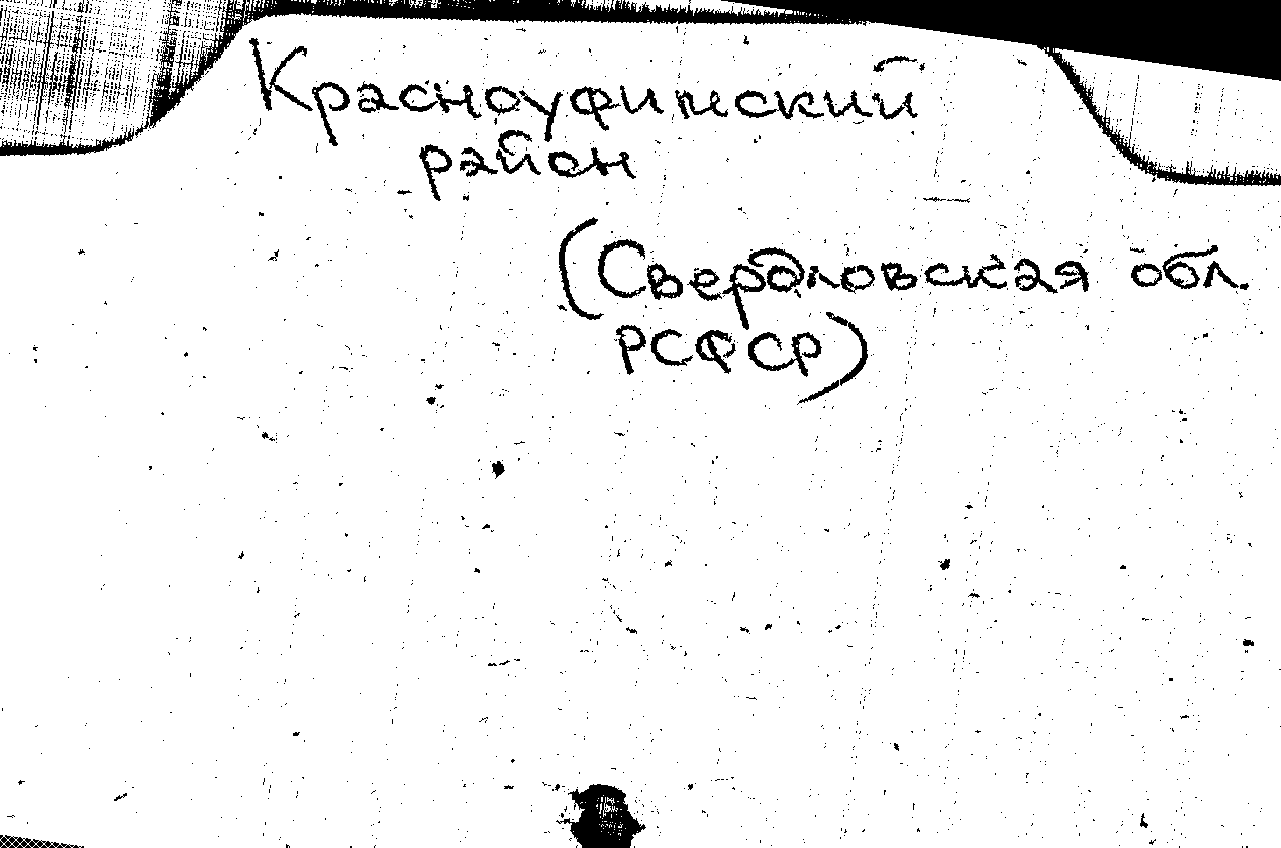 Красноуфимский
район
(Свердловская обл.
РСФСР)